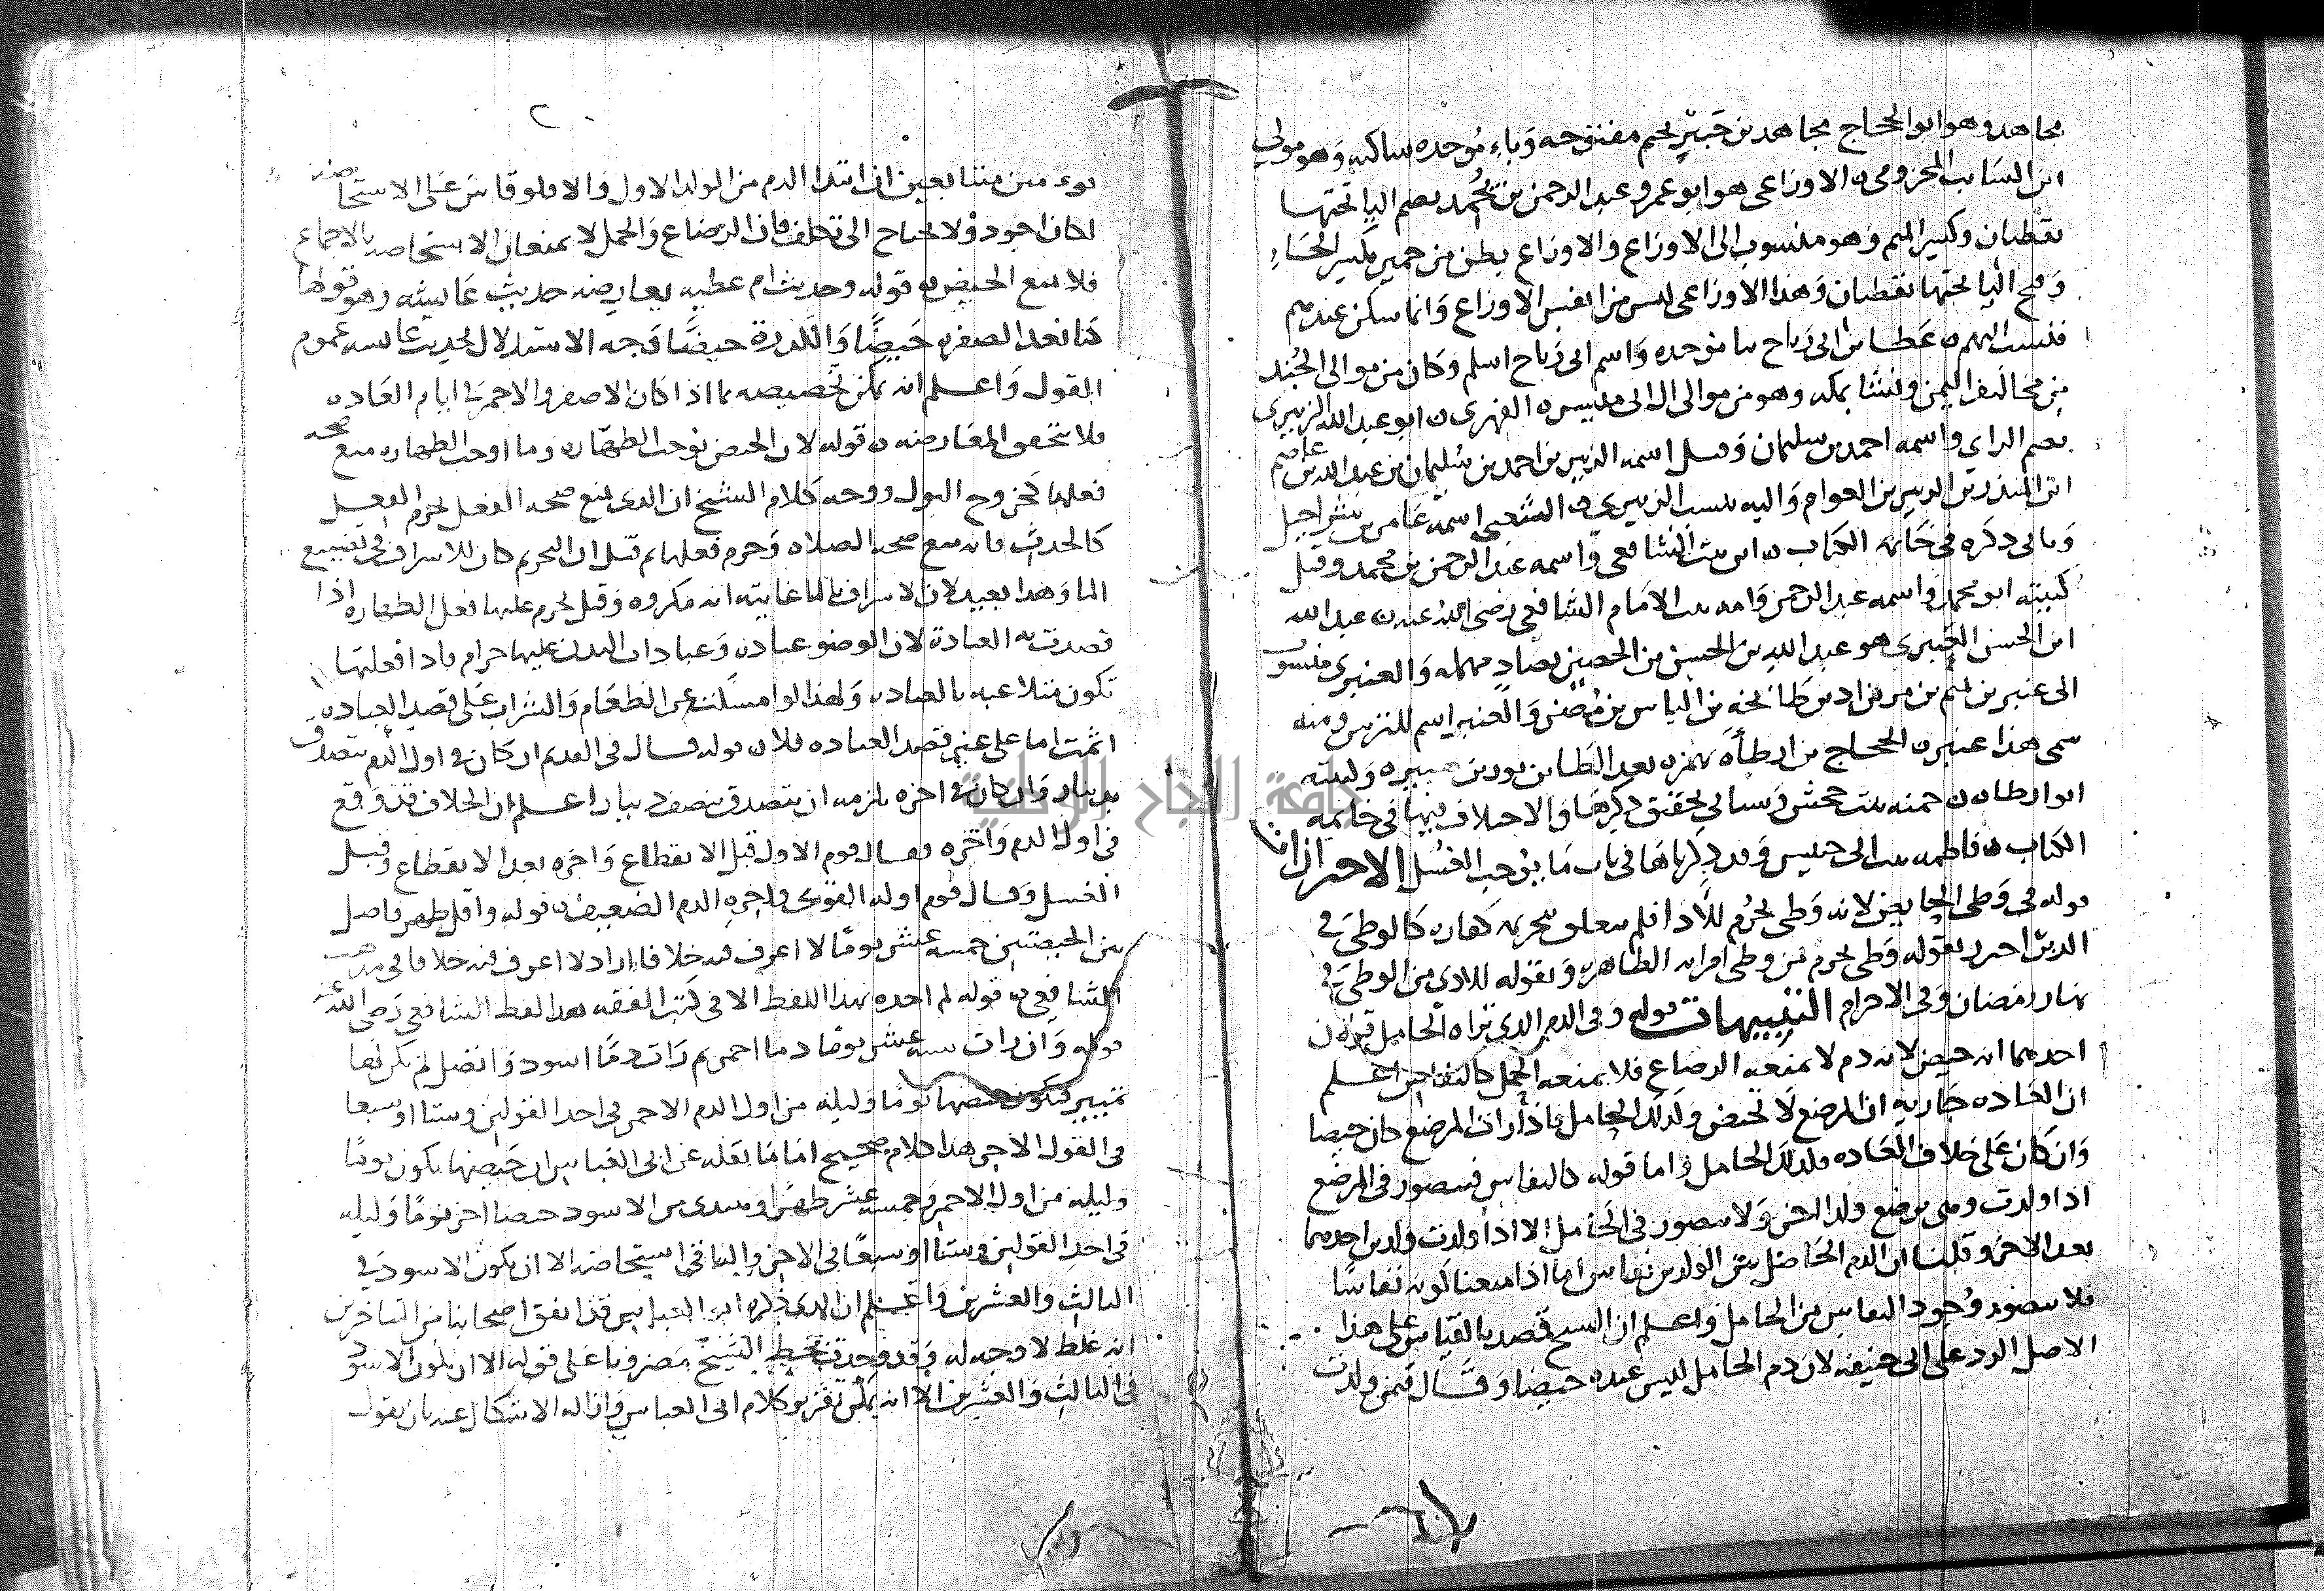 مجاهد وهو ابو الحجاج مجاهد بن جَبْر بجيم مفتوحه وباء موحده ساكنه وهو مولى
ابن السايب المخزومى ٥ الاوزاعى هو ابو عمرو عبد الرحمن بن يُحمد بضم اليا تحتها
نقطتان وكسر الميم وهو منسوب الى الاوزاع والاوزاع بطن من حمير بكسر الحاء
وفتح اليا تحتها نقطتان وهذا الاوزاعى ليس من انفس الاوزاع وانما سكن عندهم
فنسب اليهم ٥ عطا بن ابى رباح ببا موحده واسم ابى رباح اسلم وكان من موالى الجُند
من مخاليف اليمن ونشا بمكه وهو من موالى ال ابى الفهرى ٥ ابو عبد الله الزبيرى
بضم الزاى واسمه احمد بن سليمان وقيل اسمه الزبير بن احمد بن سليمان بن عبد الله بن عاصم
ابن المنذر بن الزبير بن العوام واليه ينسب الزبيرى ٥ الشعبى اسمه عامر بن شراحيل
وياتى ذكره فى خاتمه الكتاب ٥ ابن بنت الشافعى واسمه عبد الرحمن بن محمد وقيل
كنيته ابو محمد واسمه عبد الرحمن وامه بنت الامام الشافعى رضى الله عنه ٥ عبد الله
ابن الحسن العنبرى هو عبد الله بن الحسن بن الحصين بصاد مهمله والعنبرى منسوب
الى عنبر بن تميم بن مر بن اد بن طابخه بن الياس بن مضر والعنبر اسم للترس ومنه
سمى هذا عنبر ٥ الحجاج بن ارطأه بهمزه بعد الطا بن ثور بن هبيره وكنيته
ابو ارطاه ٥ حمنه بنت جحش وسياتى تحقيق ذكرها والاختلاف فيها فى خاتمه
الكتاب ٥ فاطمه بنت ابى حبيش وقد ذكرناها فى باب ما يوجب الغسل الاحترازات
قوله فى وطى الحايض لانه وطى يحرم للاذا فلم يتعلق بتحريمه كفاره كالوطى فى
الدبر احترز بقوله وطى يحرم من وطى امراته الطاهره وبقوله للاذى من الوطى فى
نهار رمضان وفى الاحرام التنبيهات قوله وفى الدم الذى تراه الحامل قولان
احدهما انه حيض لانه دم لا يمنعه الرضاع فلا يمنعه الحمل كالنفاس اعلم
ان العاده جاريه ان المرضع لا تحيض وكذلك الحامل فاذا رات المرضع كان حيضا
وان كان على خلاف العاده فكذلك الحامل واما قوله كالنفاس فيتصور فى المرضع
اذا ولدت وهى ترضع ولدا اخر ولا يتصور فى الحامل الا اذا ولدت ولدين احدهما
بعد الاخر وقلنا ان الدم الحاصل بين الولدين نفاس اما اذا منعنا كونه نفاسا
فلا يتصور وجود النفاس من الحامل واعلم ان الشيخ قصد بالقياس على هذا
الاصل الرد على ابى حنيفه لان دم الحامل ليس عنده حيضا وقال فيمن ولدت
٢
توءمين متتابعين ان ابتدا الدم من الولد الاول والا فلو قاس على الاستحاضه
لكان اجود ولا يحتاج الى تكلف فان الرضاع والحمل لا يمنعان الاستحاضه بالاجماع
فلا يمنع الحيض ٥ قوله وحديث ام عطيه يعارضه حديث عايشه وهو قولها
كنا نعد الصفره حيضا والكدرة حيضا وجه الاستدلال بحديث عايشه عموم
القول واعلم انه يمكن تخصيصه بما اذا كان الاصفر والاحمر فى ايام العاده
فلا تتحقق المعارضه ٥ قوله لان الحيض يوجب الطهاره وما اوجب الطهاره منع صحه
فعلها كخروج البول ووجه كلام الشيخ ان الذى يمنع صحه الفعل يحرم الفعل
كالحدث فانه يمنع صحه الصلاه وحرم فعلها ثم قيل ان التحريم كان للاسراف فى تضييع
الما وهذا بعيد لان الاسراف بالما غايته انه مكروه وقيل يحرم عليها فعل الطهاره اذا
قصدت به العبادة لان الوضو عباده وعبادات البدن عليها حرام فاذا فعلتها
تكون متلاعبه بالعباده ولهذا لو امسكت عن الطعام والشراب على قصد العباده
اثمت اما على غير قصد العباده فلا ٥ قوله قال فى القديم ان كان فى اول الدم يتصدق
بدينار وان كان فى اخره يلزمه ان يتصدق بنصف دينار اعلم ان الخلاف قد وقع
فى اول الدم واخره فقال قوم الاول قبل الانقطاع واخره بعد الانقطاع وقبل
الغسل وقال قوم اوله القوى واخره الدم الضعيف ٥ قوله واقل طهر فاصل
بين الحيضتين خمسه عشر يوما لا اعرف فيه خلافا اراد لا اعرف فيه خلافا فى مذهب
الشافعى ٥ قوله لم اجده بهذا اللفظ الا فى كتب الفقه هذا لفظ الشافعى رضى الله عنه
قوله وان رات سته عشر يوما دما احمر ثم رات دما اسود واتصل لم يكن لها
تمييز فتكون حيضها يوما وليله من اول الدم الاحمر فى احد القولين وستا او سبعا
فى القول الاخر هذا كلام صحيح اما ما نقله عن ابى العباس ان حيضها يكون يوما
وليله من اول الاحمر وخمسه عشر طهرا وتبتدى من الاسود حيضا اخر يوما وليله
فى احد القولين وستا او سبعا فى الاخر والباقى استحاضه الا ان يكون الاسود فى
الثالث والعشرين واعلم ان الذى ذكره ابو العباس قد اتفق اصحابنا من المتاخرين
انه غلط لا وجه له وقد وجدت بخط الشيخ مضروبا على قوله الا ان يكون الاسود
فى الثالث والعشرين الا انه يمكن تقرير كلام ابى العباس وازاله الاشكال عنه بان يقول
جامعة النجاح الوطنية